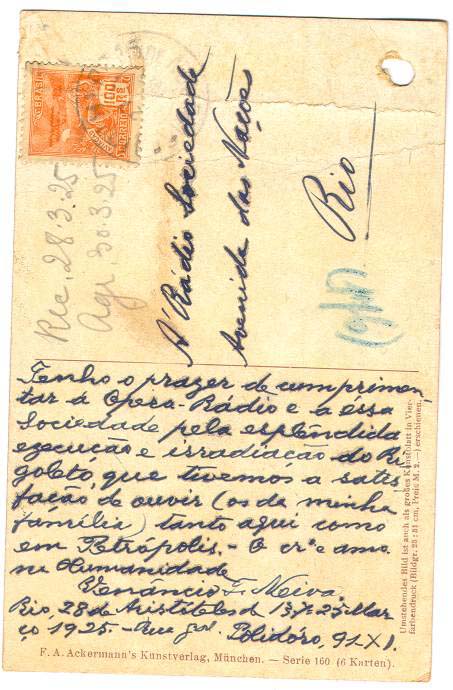 BRASIL
100
RS
CORREIO
Rec. 28.3.25
Agr. 30.3.25
A' Rádio Sociedade
Avenida das Nações
Rio
Tenho o prazer de cumprimen-
tar à Opera-Rádio e a éssa
Sociedade pela esplêndida
execução e irradiação do Ri-
goleto, que tivemos a satis-
fação de ouvir (os de minha
família) tanto aquí como
em Petrópolis. - O cr.º e amo.
na Humanidade
Venâncio F. Neiva.
Rio, 28 de Aristóteles de 137. 25 Mar-
ço 1925. - Rua gal. Polidóro, 91-XI.
Umstehendes Bild ist auch als großes Kunstblatt in Vier-
farbendruck (Bildgr. 23:31 cm, Preis M. 2.—) erschienen.
F. A. Ackermann's Kunstverlag, München. — Serie 160 (6 Karten).